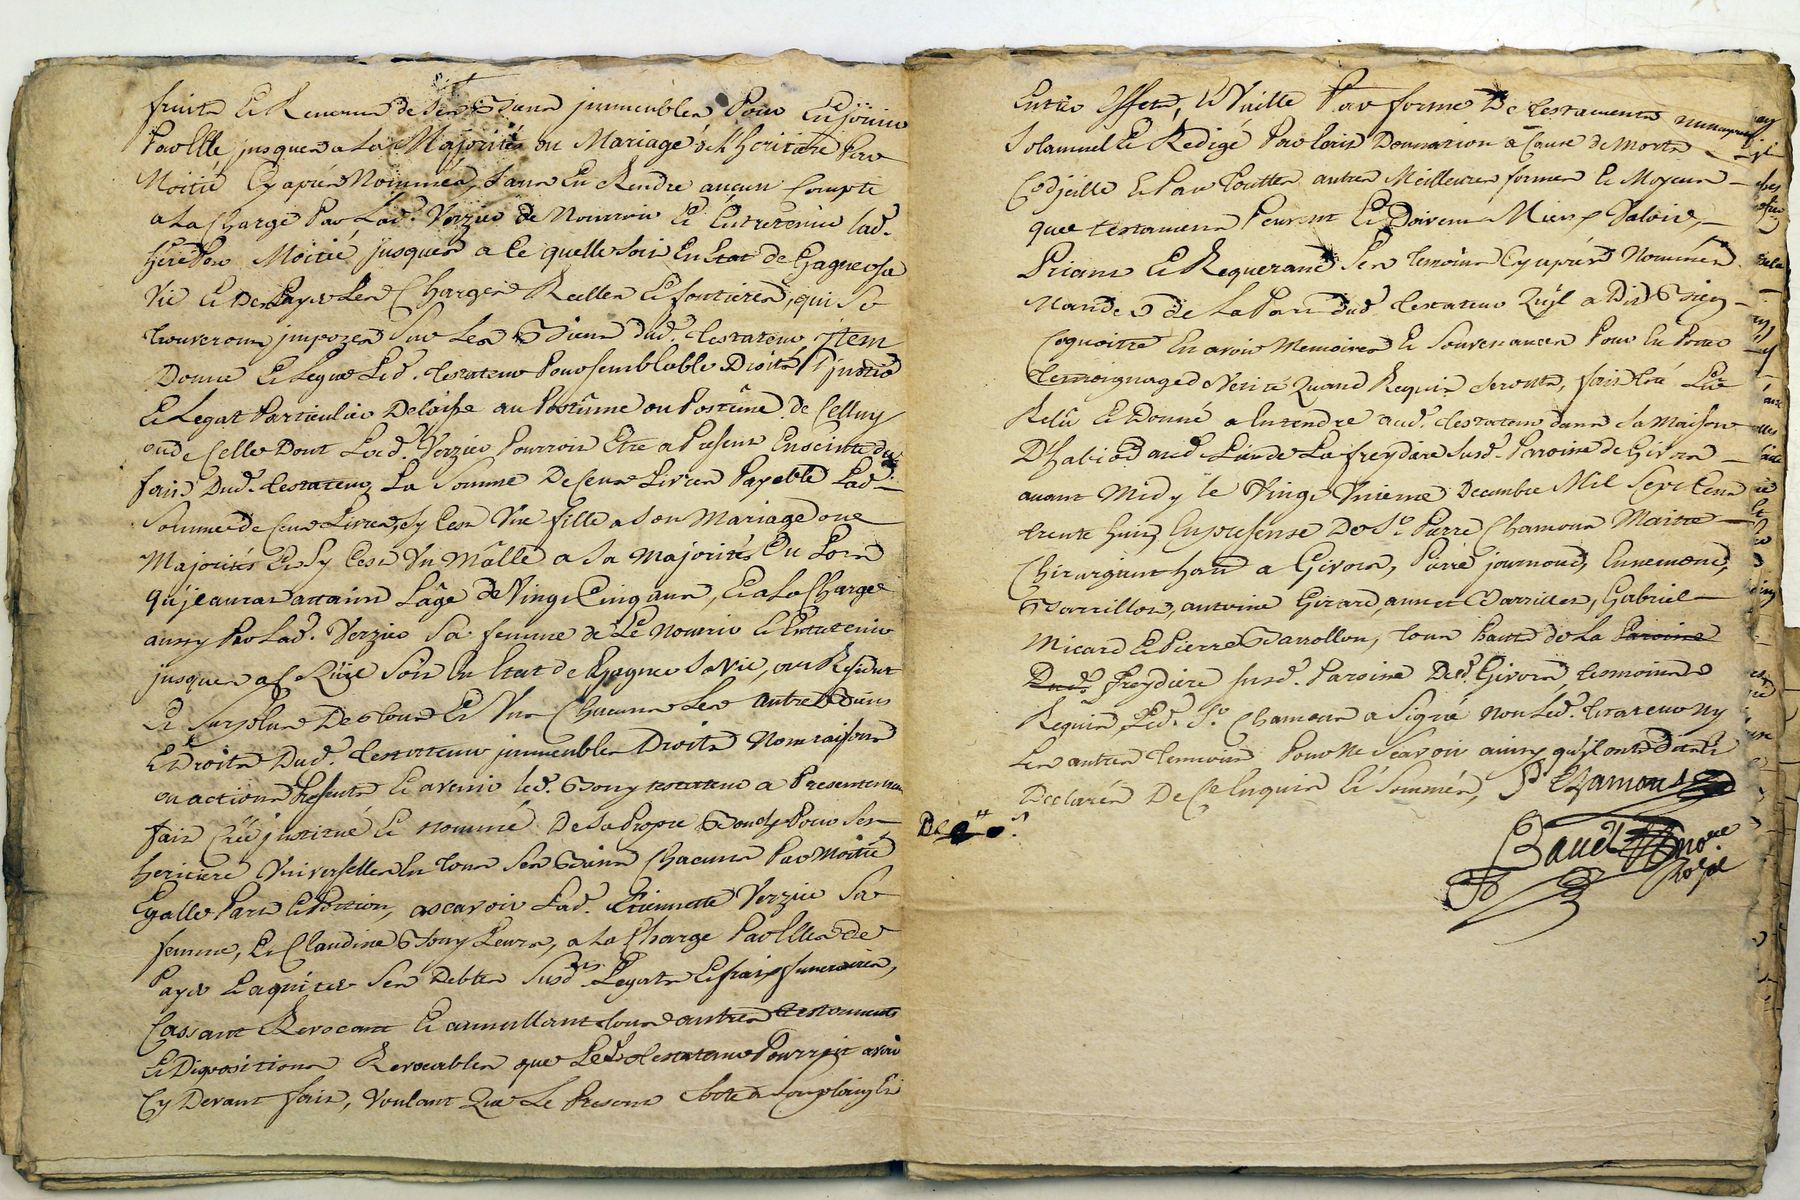 fruits Et Revenus de ses Biens immeubles Pour En jouir
Par Elle jusques a La Majorités ou Mariage de L'heritiere Par
Moitié Cy aprés Nommée, sans En Rendre aucun Compte
a La Charge Par Lad. Verzieu de Nourrir Et Entretenir lad.
here Par Moitié jusques a Ce quelle soit En Etat de Gagner sa
Vie Et De Payer Les Charges Reelles Et foncieres, qui se
trouveront impozés Sur Les Biens dud. testateur, item
Donne Et Legue Led. testateur Pour semblable Droits
Et Legat Particulier Delaisse au Postûme ou Postûme de Celluy
ou de Celle Dont Lad. Verzieu Pourroit Etre a Present Enceinte du
fait Dud. testateur, La Somme De Cent Livres Payable Lad.
Somme de Cent Livres, sy Cest Une fille a son Mariage ou
Majorités Et sy Cest Un Mâlle a sa Majorités Ou Lors
qu'jl aura attaint L'âge de Vingt Cinq ans, Et a La Charge
aussy Par Lad. Verzieu Sa femme de Le Nourrir Et Entretenir
jusques a Ce Qu'il Soit En Etat de Gagner Sa Vie, au Residut
Et Surplus De tous Et Uns Chacuns Les autres Biens
Et Droits Dud. testateur immeubles Droits Noms raisons
ou actions Presents Et avenir led. Bony testateur a Presentement
fait Créé institué Et nommé De sa Propre Bouche Pour Ses
heritiere Universelles En tous Ses Biens Chacunes Par Moitié
Egalle Part Et Portion, ascavoir Lad. Etiennette Verzieu Sa
femme, Et Claudine Bony Leurs, a La Charge Par Elles de
Payer Et aquiter Ses Debtes Susd. Legats Et fraix funeraires,
Cassant Revocant Et annullant tous autres testaments
Et Dispositions Revocables que Led. testateur Pourroit avoir
Cy Devant fait, Voulant Que Le Present Sorte a Son plain Et
Entier Effets, Et Vaille Par forme De testaments nuncupatif
Solamnel Et Redigé Par Ecrit Donnation a Cause de Morts
Codjcille Et Par Touttes autres Meilleures formes Et Moyens
que testaments Peuvent Et Doivent Mieux Valoir,
Priant Et Requerant Ses temoins Cy aprés Nommés
Mandés de La Part dud. testateur Qu'jl a Dit Bien
Coynoitre En avoir Memoires Et Souvenances Pour En Porter
temoignage de Verité Quand Requis Seronts, fait Lu
Relû Et Donné a Entendre aud. testateur dans Sa Maison
D'habi.on aud. Lieu de La freydiere Susd. Paroisse de Givors
avant Midy le Vingt Unieme Decembre Mil Sept Cent
trente huit En presense De Sr. Pierre Chamoux Maitre
Chirurgien hant a Givors, Pierre journoud, Ennemond,
Barrillon, antoine Girard, annet Barrillon, Gabriel
Micard Et Pierre Barrollon, tous hants de La Paroisse
Dud. Freydiere Susd. Paroisse De Givors temoins
Requis, Led. Sr. Chamoux a Signé non Led. testateur Ny
Les autres temoins Pour Ne Scavoir ainsy qu'jl onts
Declarés De Ce Enquis Et Sommés, P Chamoux
Nore
Royal